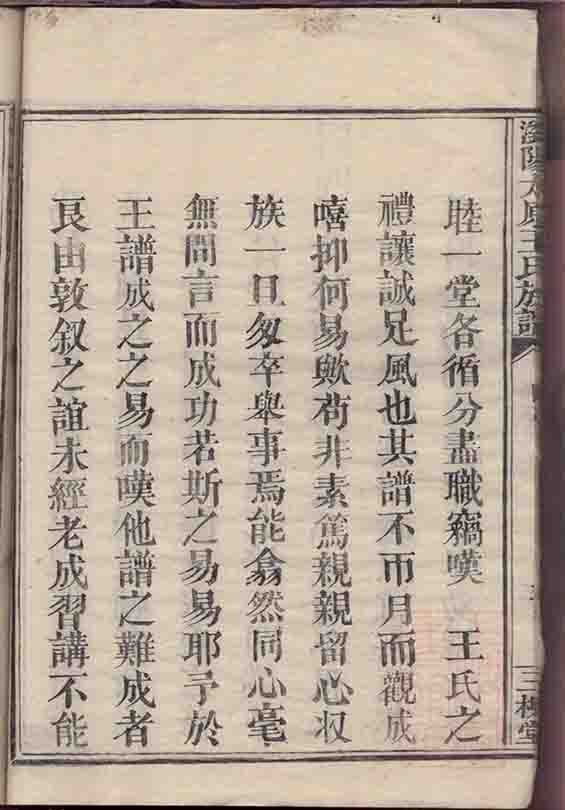 王氏族譜
三槐堂
睦一堂各循分盡職竊嘆 王氏之
禮讓誠足風也其譜不帀月而觀成
嘻抑何易歟苟非素篤親親留心収
族一旦匆卒舉事焉能翕然同心毫
無間言而成功若斯之易易耶予於
王譜成之之易而嘆他譜之難成者
良由敦叙之誼未經老成習講不能